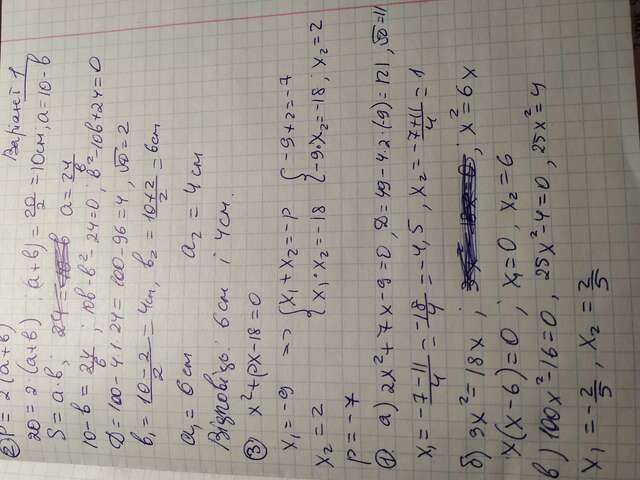 Варіант 1
② P = 2(a+b)
20 = 2·(a+b) (a+b) = 20/2 = 10см, a = 10-b
S = a·b; a = 24/b
10-b = 24/b; 10b-b²-24=0; b²-10b+24=0
D = 100-4·1·24 = 100-96 = 4, √D = 2
b₁ = (10-2)/2 = 4см, b₂ = (10+2)/2 = 6см
a₁ = 6см a₂ = 4см
Відповідь: 6см і 4см.
③ x²+px-18=0
x₁ = -9 => { x₁+x₂ = -p { -9+2 = -7
x₂ = 2 { x₁·x₂ = -18 { -9·x₂ = -18; x₂ = 2
p = -7
① а) 2x²+7x-9=0, D = 49-4·2·(-9) = 121, √D = 11
x₁ = (-7-11)/4 = -18/4 = -4,5, x₂ = (-7+11)/4 = 1
б) 3x² = 18x; 3x² 18x = 0; x² = 6x
x(x-6) = 0; x₁ = 0, x₂ = 6
в) 100x²-16=0, 25x²-4=0, 25x² = 4
x₁ = -2/5, x₂ = 2/5